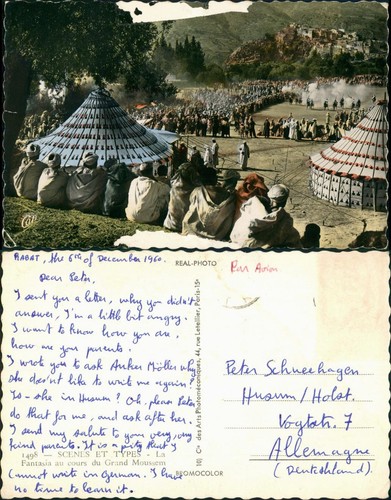 RABAT, the 6th of December 1960.
Dear Peter,
I sent you a letter, why you didn't
answer, I'm a little bit angry.
I want to know how you are,
how are your parents.
I wrote you to ask Anker Möller why
she doesn't like to write me again?
Is-she in Husum? Oh, please Peter
do that for me, and ask after her.
I send my salute to your very, very
kind parents. It is a pity that I
1498 - SCENES ET TYPES - La
Fantasia au cours du Grand Moussem
cannot write in German. I have
no time to learn it.
REAL-PHOTO
Cie des Arts Photomécaniques, 44, rue Letellier, Paris-15e
PROMOCOLOR
Par Avion
Peter Schneehagen
Husum/Holst.
Vogtstr. 7
Allemagne
(Deutschland).